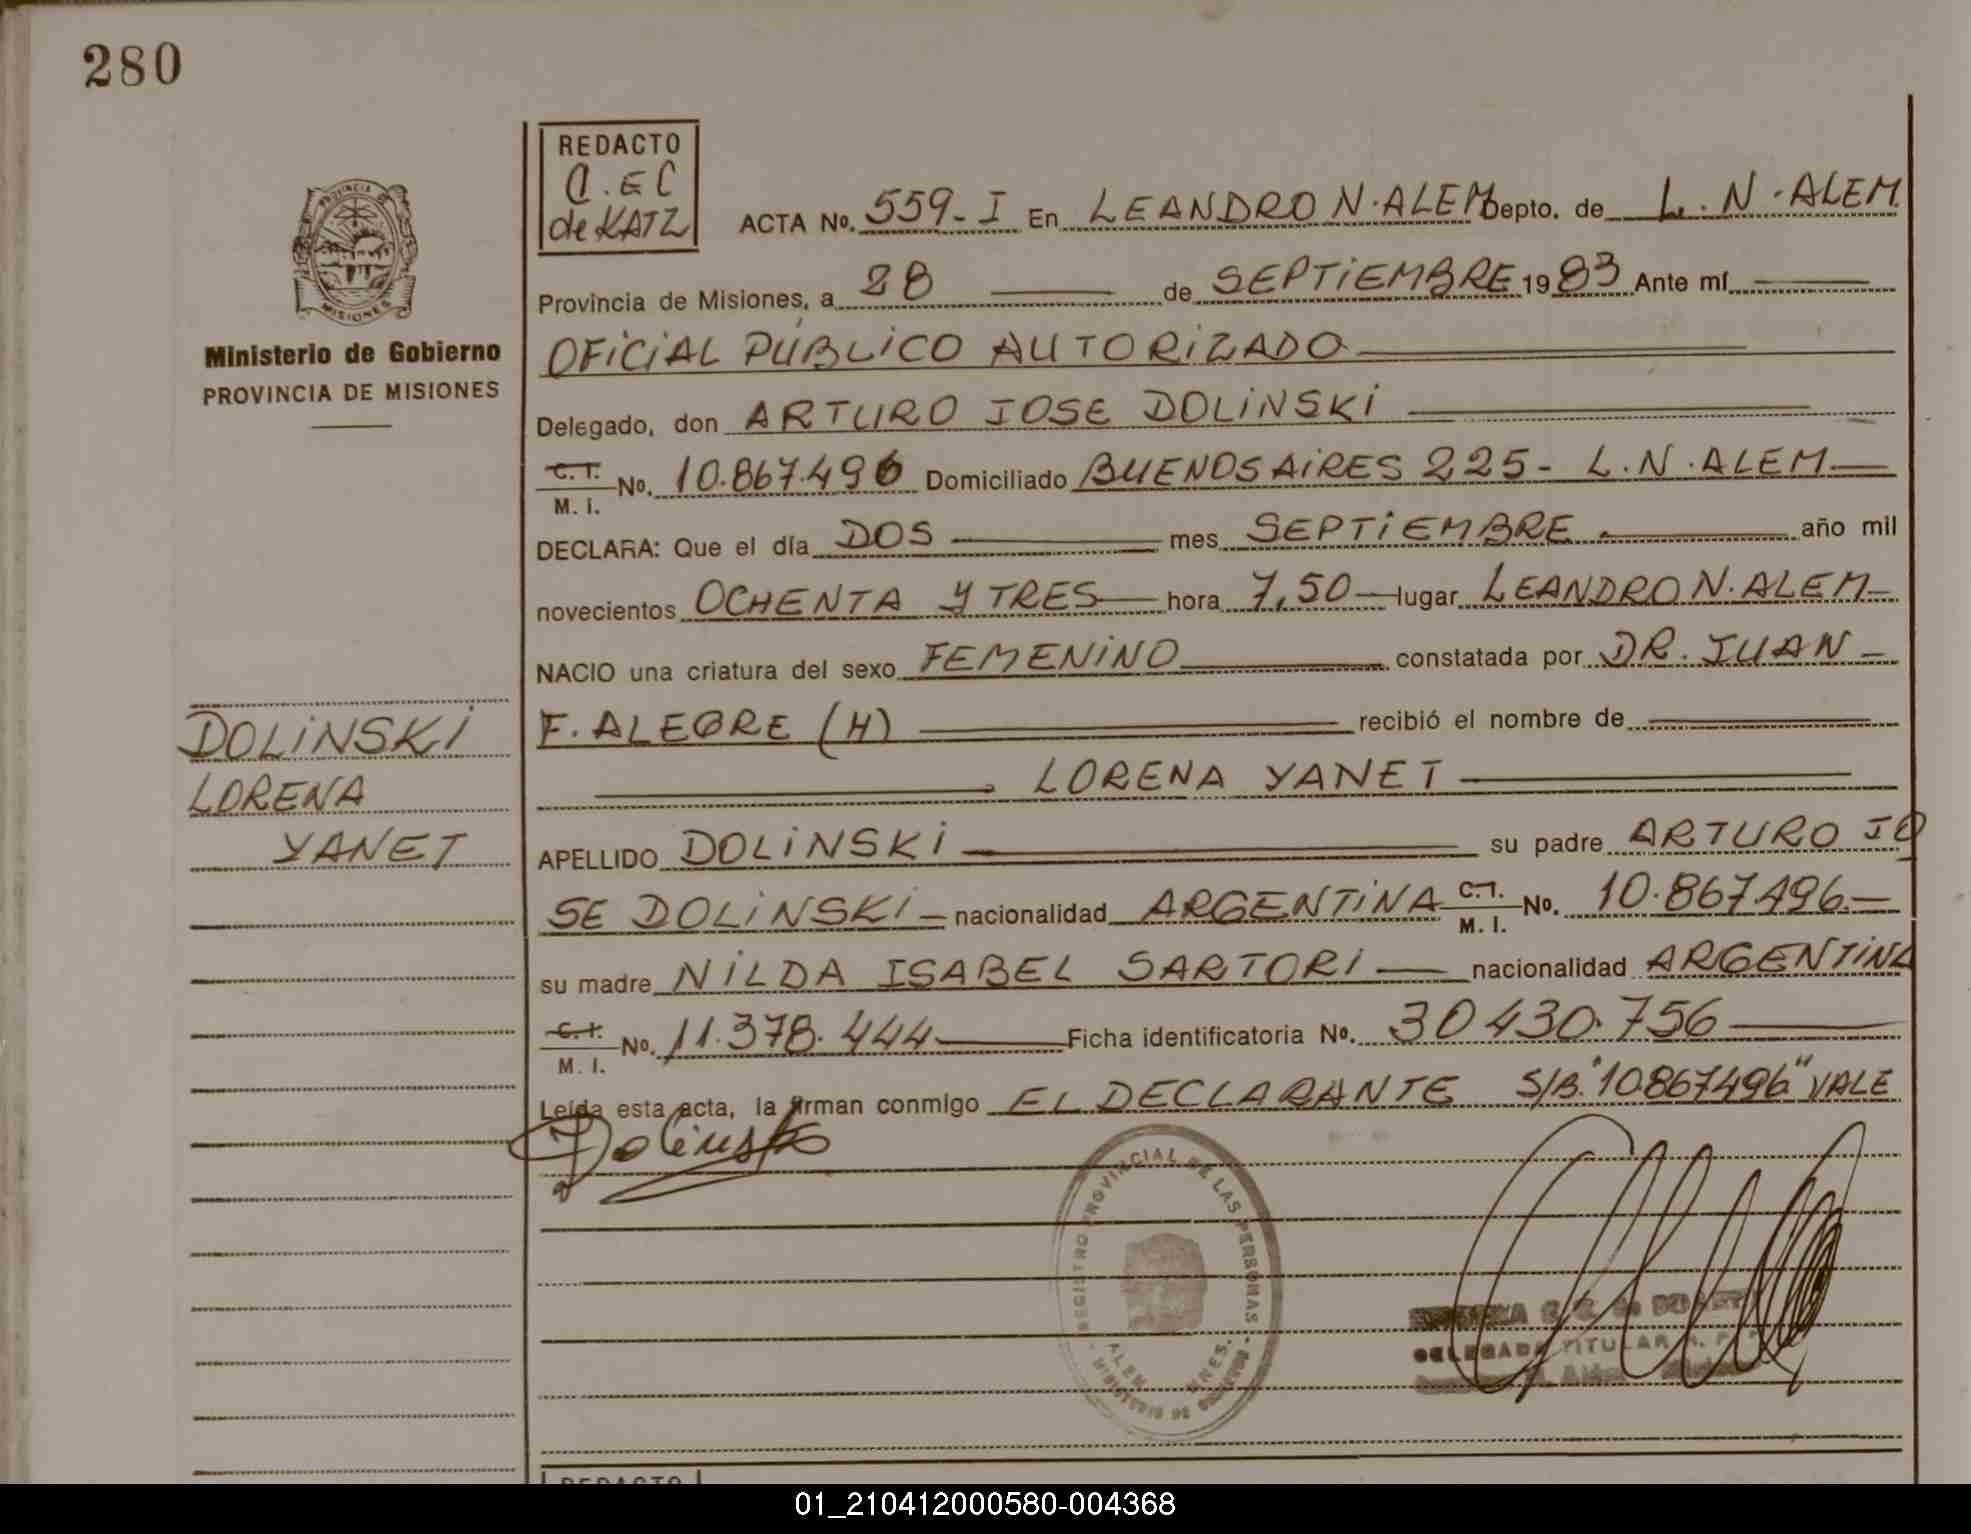 280
REDACTO
C. E C
de KATZ
ACTA No. 559-I En LEANDRO N. ALEM Depto. de L. N. ALEM
PROVINCIA DE
MISIONES
Ministerio de Gobierno
PROVINCIA DE MISIONES
Provincia de Misiones, a 28 de SEPTiEMBRE 1983 Ante mí
OFiCiAL PÚBLiCO AUTORiZADO
Delegado, don ARTURO JOSE DOLiNSKi
C. I. No. 10.867.496 Domiciliado BUENOS AiRES 225 - L. N. ALEM
M. I.
DECLARA: Que el día DOS mes SEPTiEMBRE año mil
novecientos OCHENTA Y TRES hora 7,50 lugar LEANDRO N. ALEM
NACIO una criatura del sexo FEMENiNO constatada por DR. JUAN
F. ALEGRE (H) recibió el nombre de
LORENA YANET
DOLiNSKi
LORENA
YANET
APELLIDO DOLiNSKi su padre ARTURO JO
SE DOLiNSKi nacionalidad ARGENTiNA C. I. No. 10.867.496
M. I.
su madre NiLDA ISABEL SARTORi nacionalidad ARGENTiNA
C. I. No. 11.378.444 Ficha identificatoria No. 30430.756
M. I.
Leída esta acta, la firman conmigo EL DECLARANTE S/B. "10.867.496" VALE
Dolinski
REGISTRO PROVINCIAL DE LAS PERSONAS
ALEM MNES.
DELEGADA TITULAR
REDACTO
01_210412000580-004368